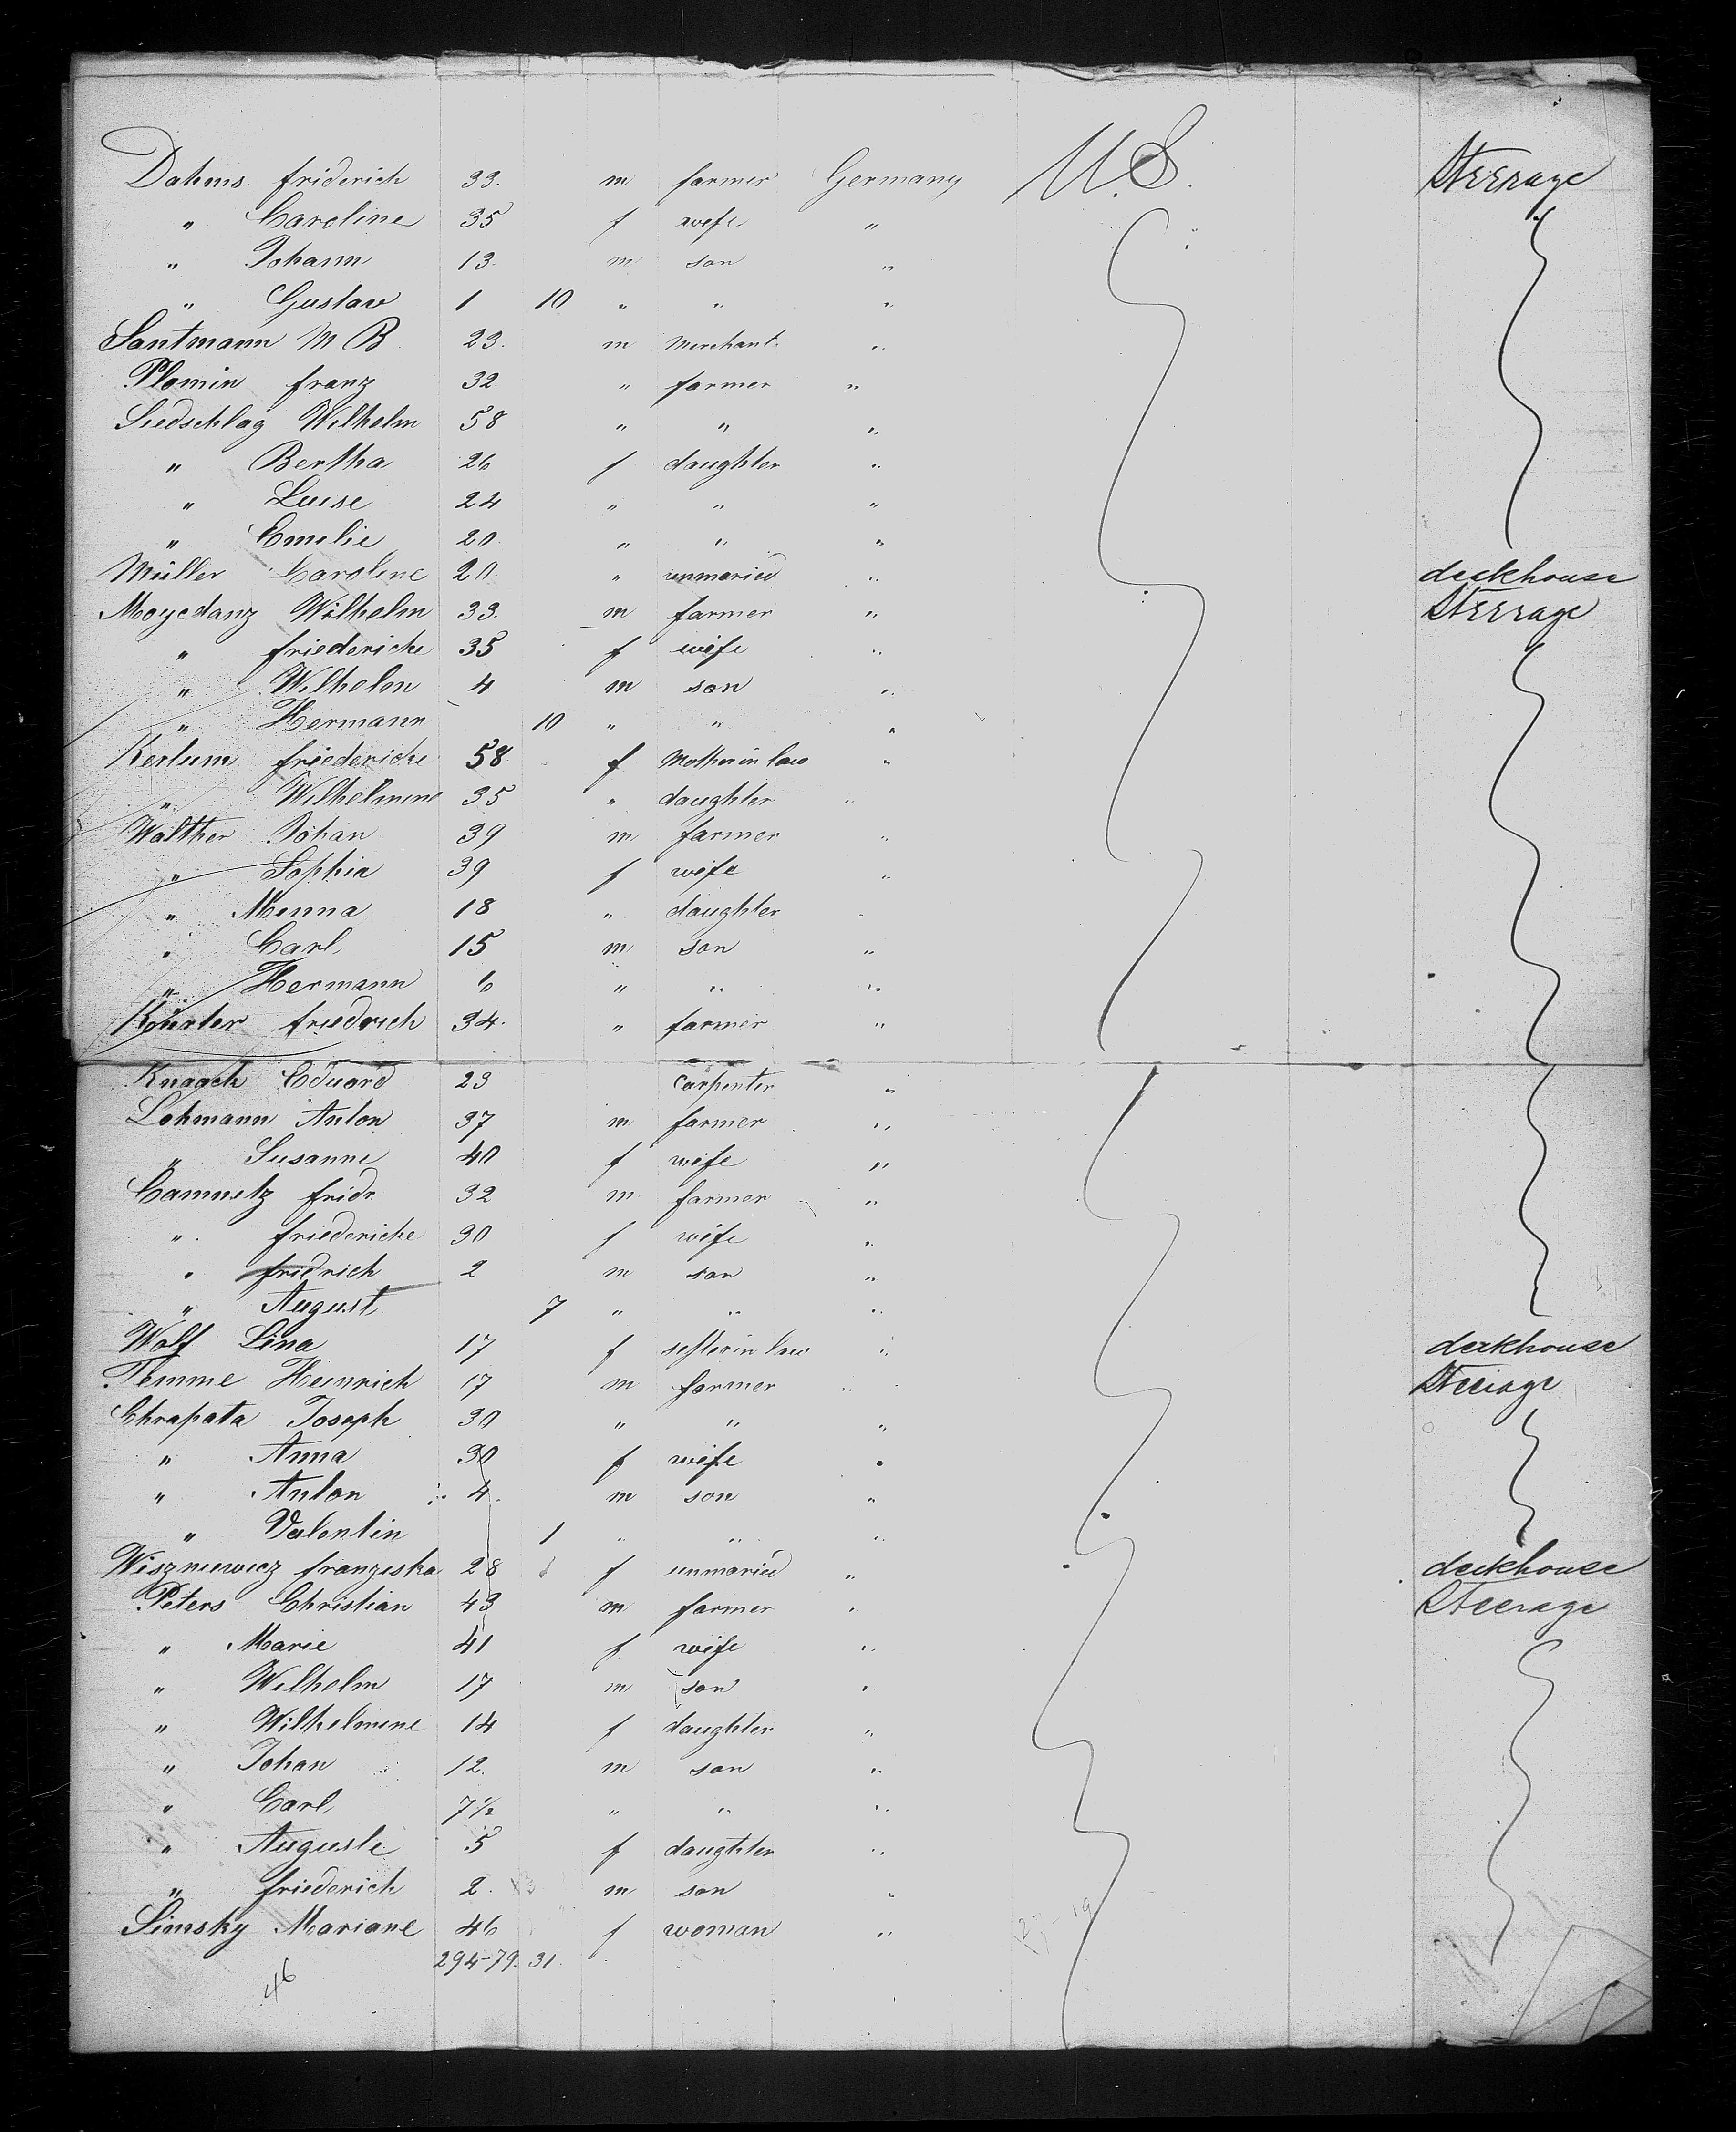 Dahms friderich 33. m farmer Germany U.S. Steerage
" Caroline 35 f wife "
" Johann 13. m son "
" Gustav 1 10 " " "
Santmann M B 23. m Merchant "
Plamin franz 32 " farmer "
Siedschlag Wilhelm 58 " " "
" Bertha 26 f daughter "
" Luise 24 " " "
" Emelie 20 " " "
Müller Caroline 20 " unmaried " deckhouse
Moyedanz Wilhelm 33. m farmer " Steerage
" friedericke 35 f wife "
" Wilhelm 4 m son "
" Hermann 10 " " "
Kerlum friedericke 58 f Mother in law "
" Wilhelmine 35 " daughter "
Walther Johan 39 m farmer "
" Sophia 39 f wife "
" Menna 18 " daughter
" Carl 15 m son "
" Hermann 6 " " "
friedrich 34. " farmer "
Eduard 23 carpenter "
Lohmann Anton 37 m farmer "
" Susanne 40 f wife "
Camnetz fridr 32 m farmer "
" friedericke 30 f wife "
" fridrich 2 m son "
" August 7 " " "
Wolf Lina 17 f sester in law " deckhouse
Temme Heinrich 17 m farmer " Steerage
Chrapata Joseph 30 " " "
" Anna 30 f wife "
" Anton 4. m son "
" Valentin 1 " " "
Wiszniewicz franziska 28 f unmaried " deckhouse
Peters Christian 43 m farmer " Steerage
" Marie 41 f wife "
" Wilhelm 17 m son "
" Wilhelmine 14 f daughter "
" Johan 12. m son "
" Carl 7 1/2 " " "
" Auguste 5 f daugther "
" friederich 2. m son "
Simsky Mariane 46 f woman "
294-79. 31.
46